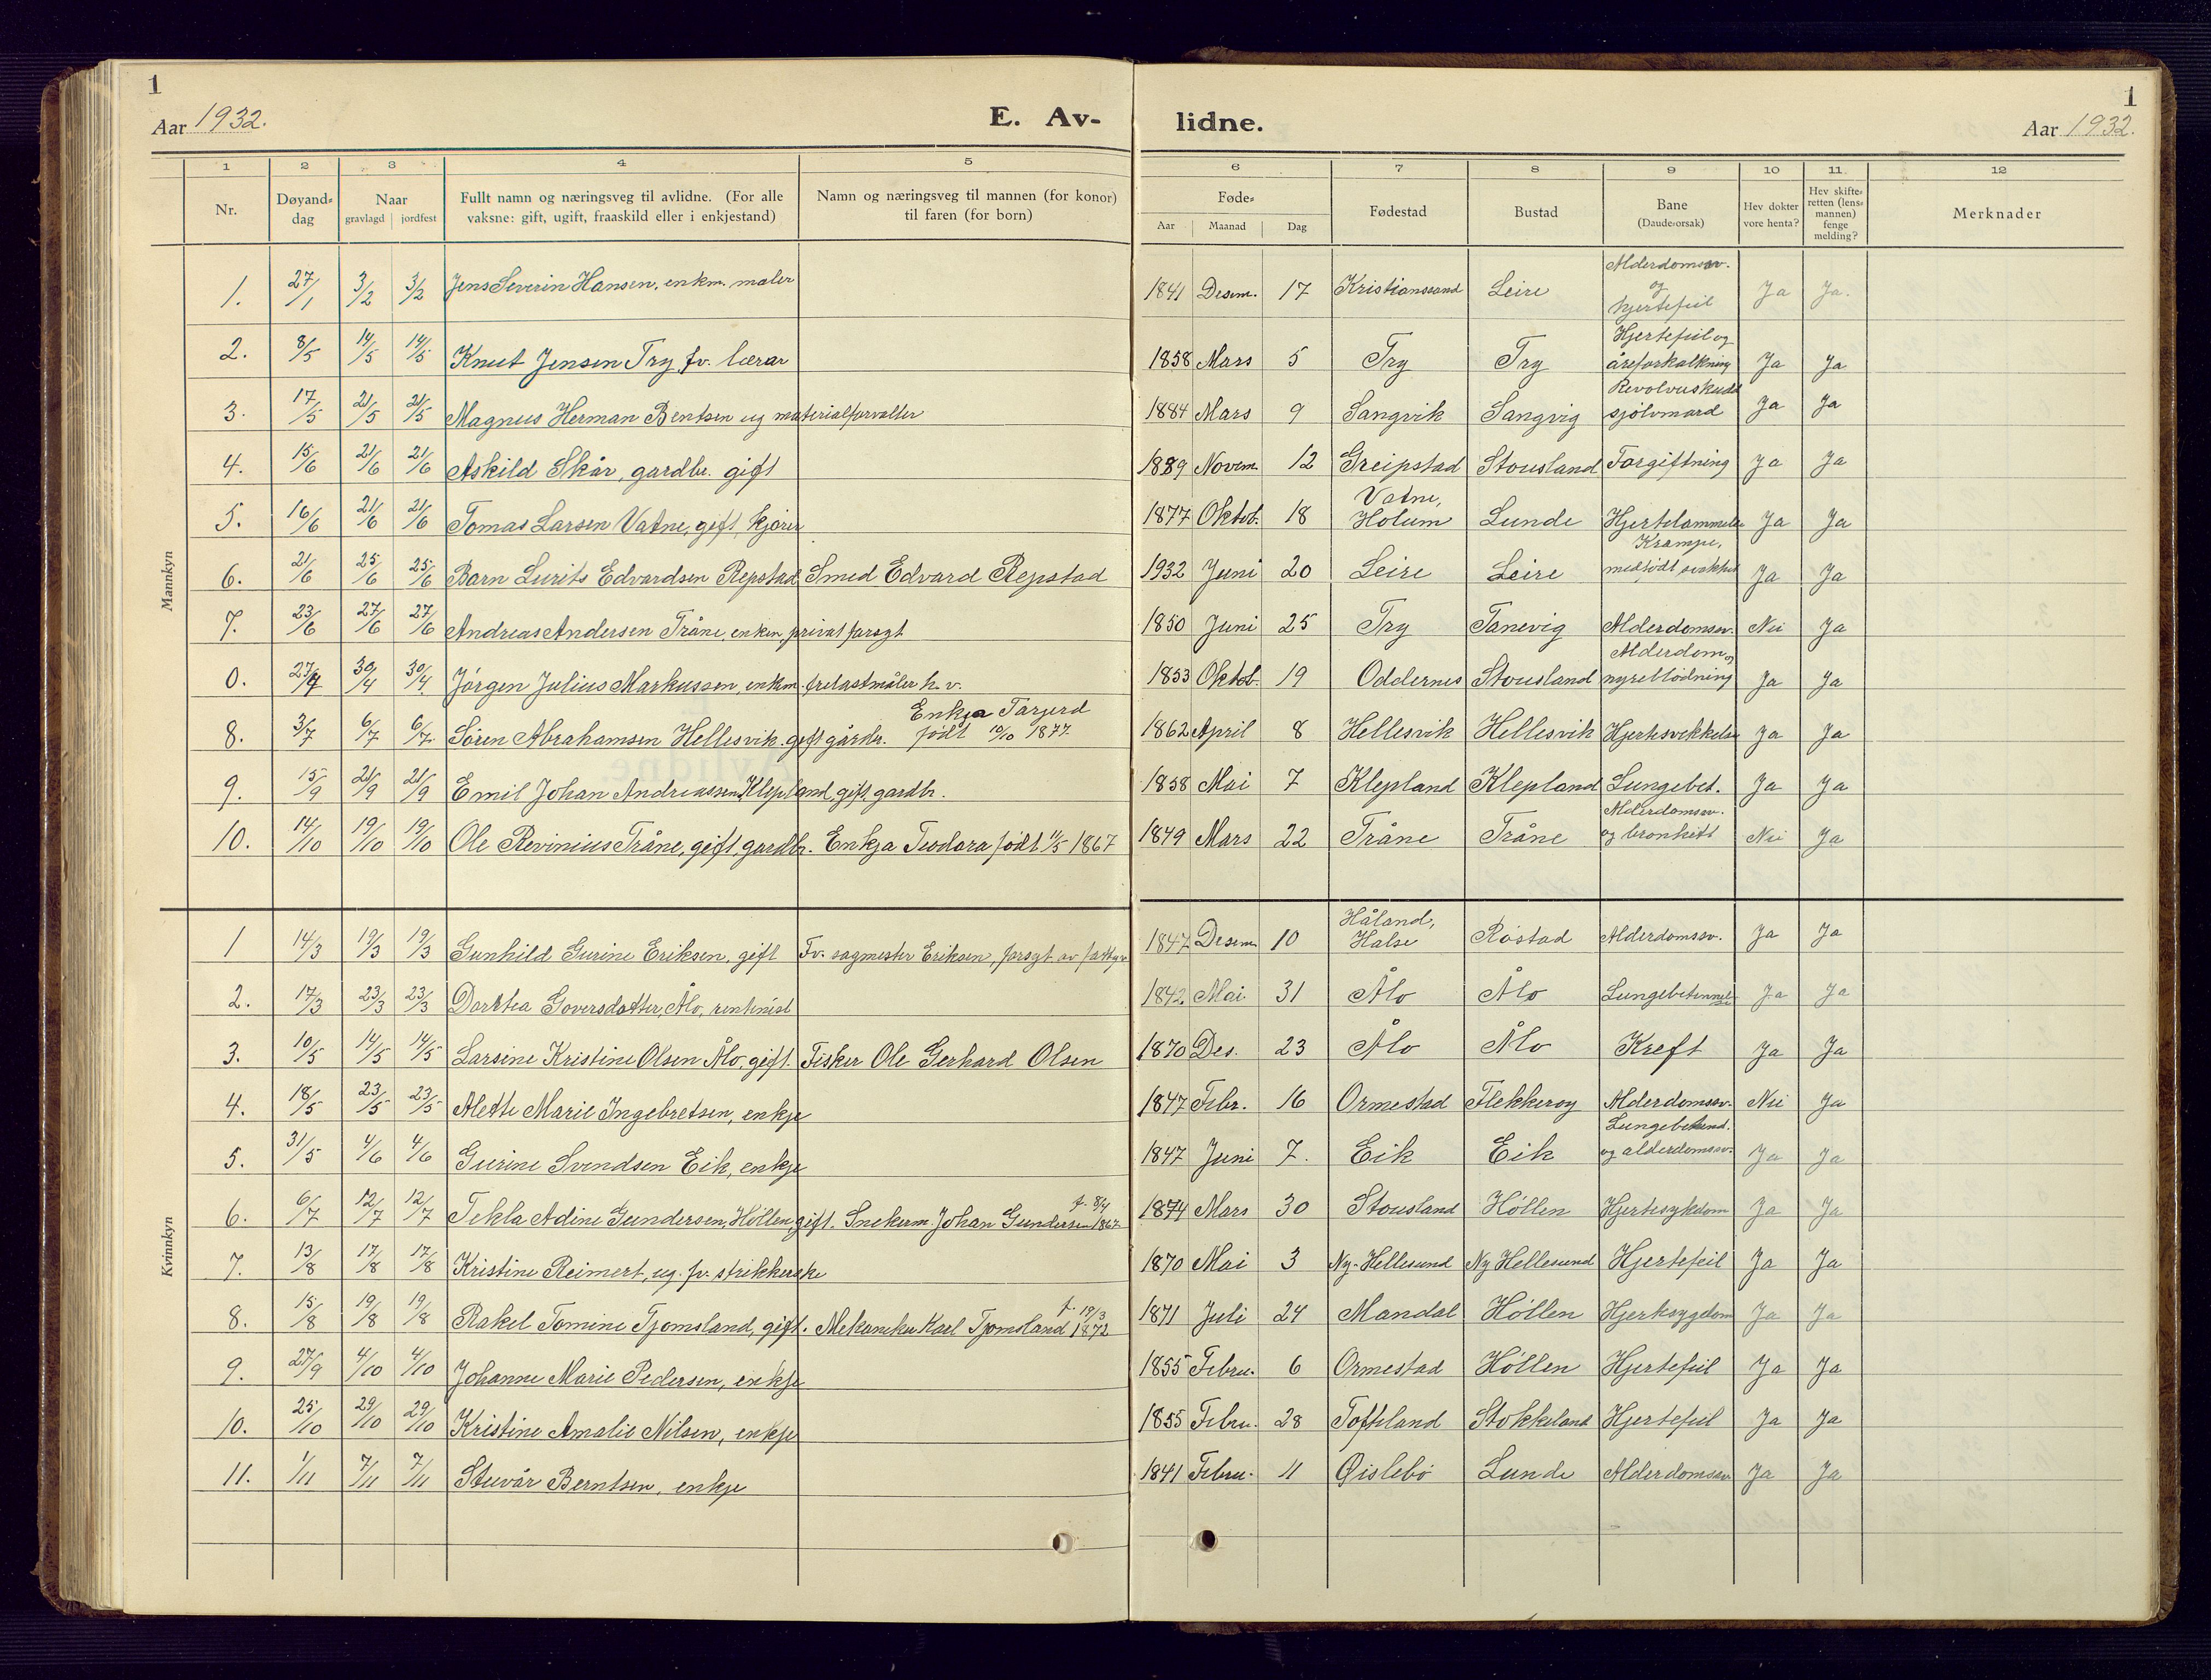 1
Aar 1932.
E. Av-
lidne.
1
Aar 1932.
1 2 3 4 5 6 7 8 9 10 11. 12
Nr.
Døyand-dag
Naar
gravlagd jordfest
Fullt namn og næringsveg til avlidne. (For alle
vaksne: gift, ugift, fraaskild eller i enkjestand)
Namn og næringsveg til mannen (for konor)
til faren (for born)
Føde-
Aar Maanad Dag
Fødestad
Bustad
Bane
(Daude-orsak)
Hev dokter
vore henta?
Hev skifte-
retten (lens-
mannen)
fenge
melding?
Merknader
Mannkyn
1. 27/1 3/2 3/2 Jens Severin Hansen, enkm. maler 1841 Desem. 17 Kristianssand Leire Alderdomsv. og hjertefeil Ja Ja.
2. 8/5 14/5 14/5 Knut Jensen Try, fv. lærar 1858 Mars 5 Try Try Hjertefeil og åreforkalkning Ja Ja
3. 17/5 21/5 21/5 Magnus Herman Bentsen ug materialforvalter 1884 Mars 9 Sangvik Sangvig Revolverskudd sjölvmord Ja Ja
4. 15/6 21/6 21/6 Askild Skår, gardbr. gift 1889 Novem. 12 Greipstad Stousland Forgiftning Ja Ja
5. 16/6 21/6 21/6 Tomas Larsen Vatne, gift, kjörer 1877 Oktob. 18 Vatne, Holum Lunde Hjertelammelse Ja Ja
6. 21/6 25/6 25/6 Barn Lurits Edvardsen Repstad Smed Edvard Repstad 1932 Juni 20 Leire Leire Krampe, medfödt svakhet Ja Ja
7. 23/6 27/6 27/6 Andreas Andersen Tråne, enkm, privat forsgt 1850 Juni 25 Try Tanevig Alderdomsv. Nei Ja
0. 27/4 30/4 30/4 Jörgen Julius Markussen, enkm. h. v. 1853 Oktob. 19 Oddernes Stousland Alderdom og nyreblödning Ja Ja
8. 3/7 6/7 6/7 Sören Abrahamsen Hellesvik. gift gårdbr. Enkja Targerd födt 10/10 1877. 1862 April 8 Hellesvik Hellesvik Hjertesvekkelse Ja Ja
9. 15/9 21/9 21/9 Emil Johan Andreassen Klepland, gift, gardbr. 1858 Mai 7 Klepland Klepland Lungebet. Ja Ja
10. 14/10 19/10 19/10 Ole Revinius Tråne, gift, gardbr. Enkja Teodora födt 11/5 1867 1849 Mars 22 Tråne Tråne Alderdomsv. og bronkitt Nei Ja
Kvinnkyn
1 14/3 19/3 19/3 Gunhild Gurine Eriksen, gift Fv. sagmester Eriksen, forsgt av fattigv 1847 Desem 10 Håland, Halse Röstad Alderdomssv. Ja Ja
2. 17/3 23/3 23/3 Dortea Goversdatter, Ålo, rentenist 1842. Mai 31 Ålo Ålo Lungebetennelse Ja Ja
3. 10/5 14/5 14/5 Larsine Kristine Olsen Ålo, gift. Fisker Ole Gerhard Olsen 1870 Des. 23 Ålo Ålo Kreft Ja Ja
4. 18/5 23/5 23/5 Alette Marie Ingebretsen, enkje 1847 Febr. 16 Ormestad Flekkeroy Alderdomsv. Nei Ja
5. 31/5 4/6 4/6 Gurine Svendsen Eik, enkje 1847 Juni 7. Eik Eik Lungebetend. og alderdomssv. Ja Ja
6. 6/7 12/7 12/7 Tekla Adine Gundersen, Höllen, gift. Snekerm. Johan Gundersen f. 8/4 1867 1874 Mars 30 Stousland Höllen Hjertesykdom Ja Ja
7. 13/8 17/8 17/8 Kristine Reimert, ug. fv. strikkerske 1870 Mai 3 Ny-Hellesund Ny Hellesund Hjertefeil Ja Ja
8. 15/8 19/8 19/8 Rakel Tomine Tjomsland, gift. Mekaneker Karl Tjomsland f. 19/3 1872 1871 Juli 24 Mandal Höllen Hjertesygdom Ja Ja
9. 27/9 4/10 4/10 Johanne Marie Pedersen, enkje 1855 Febru. 6 Ormestad Höllen Hjertefeil Ja Ja
10. 25/10 29/10 29/10 Kristine Amalie Nilsen, enkje 1855 Febru. 28 Tofteland Stokkeland Hjertefeil Ja Ja
11. 1/11 7/11 7/11 Stuvår Berntsen, enkje 1841 Febru. 11 Øislebö Lunde Alderdomssv Ja Ja